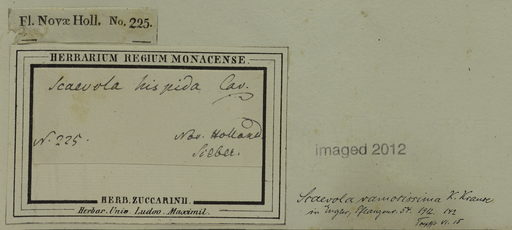 Fl. Novæ Holl. No. 225.
HERBARIUM REGIUM MONACENSE.
Scaevola hispida Cav.
N. 225.
Nov. Holland
Sieber.
HERB. ZUCCARINII.
Herbar. Univ. Ludov. Maximil.
imaged 2012
Scaevola ramosissima K. Krause
in Engler, Pflanzenr. 54. 1912. 142